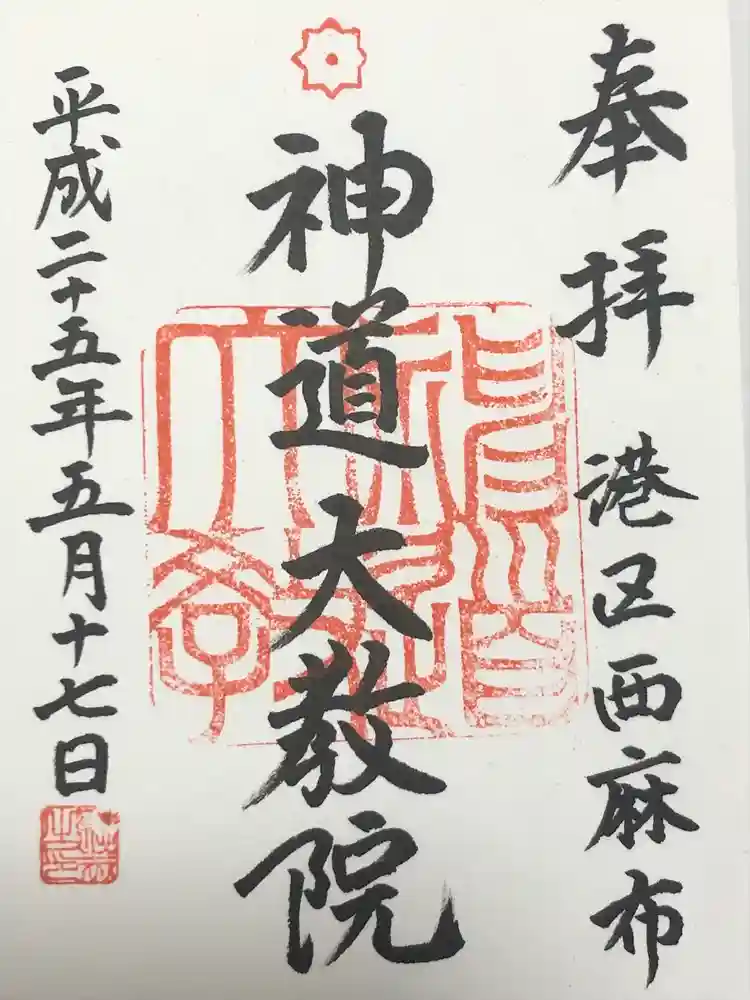 奉拝 港区西麻布
神道大教院
平成二十五年五月十七日